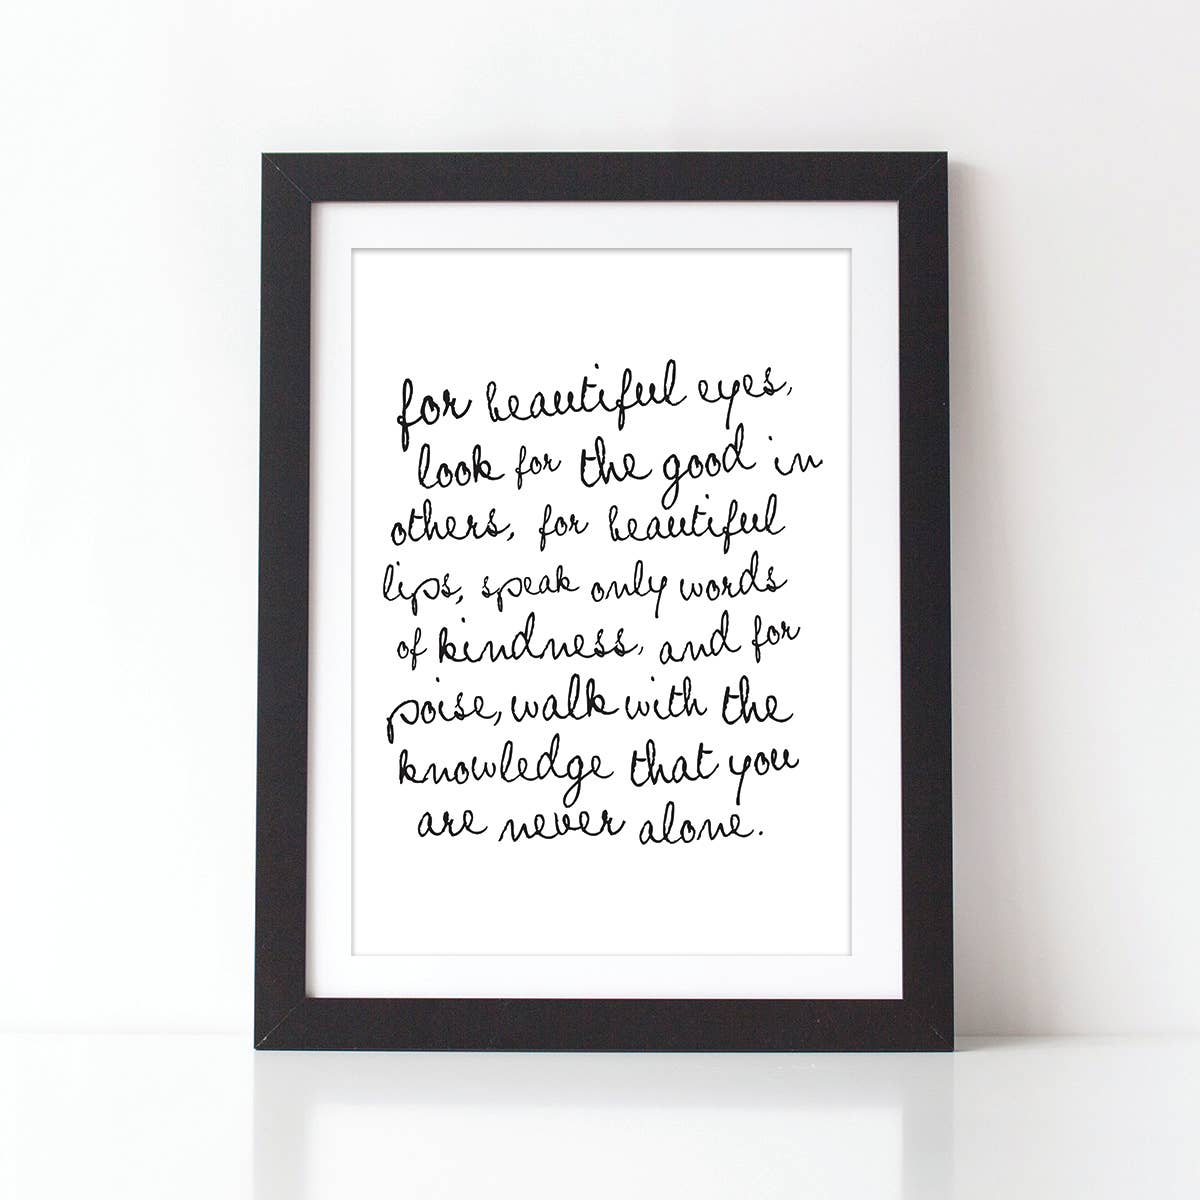 for beautiful eyes,
look for the good in
others, for beautiful
lips, speak only words
of kindness, and for
poise, walk with the
knowledge that you
are never alone.